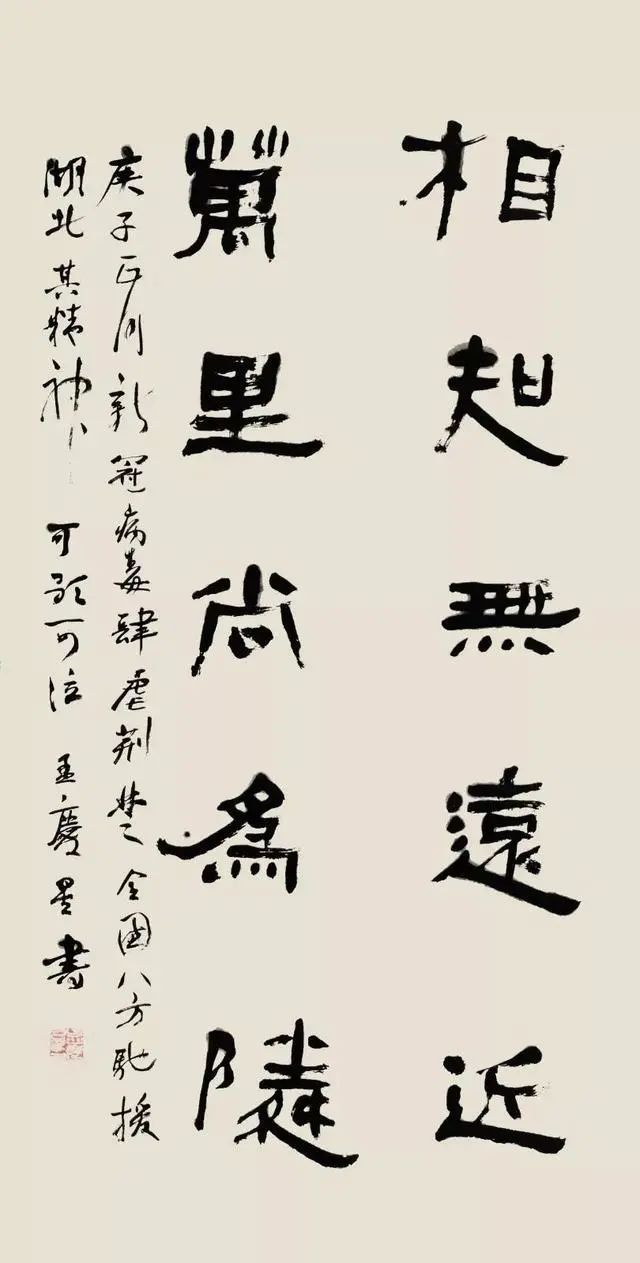 相知無遠近
萬里尚為隣
庚子正月新冠病毒肆虐荆楚全國八方馳援
湖北其精神可歌可泣孟慶星書